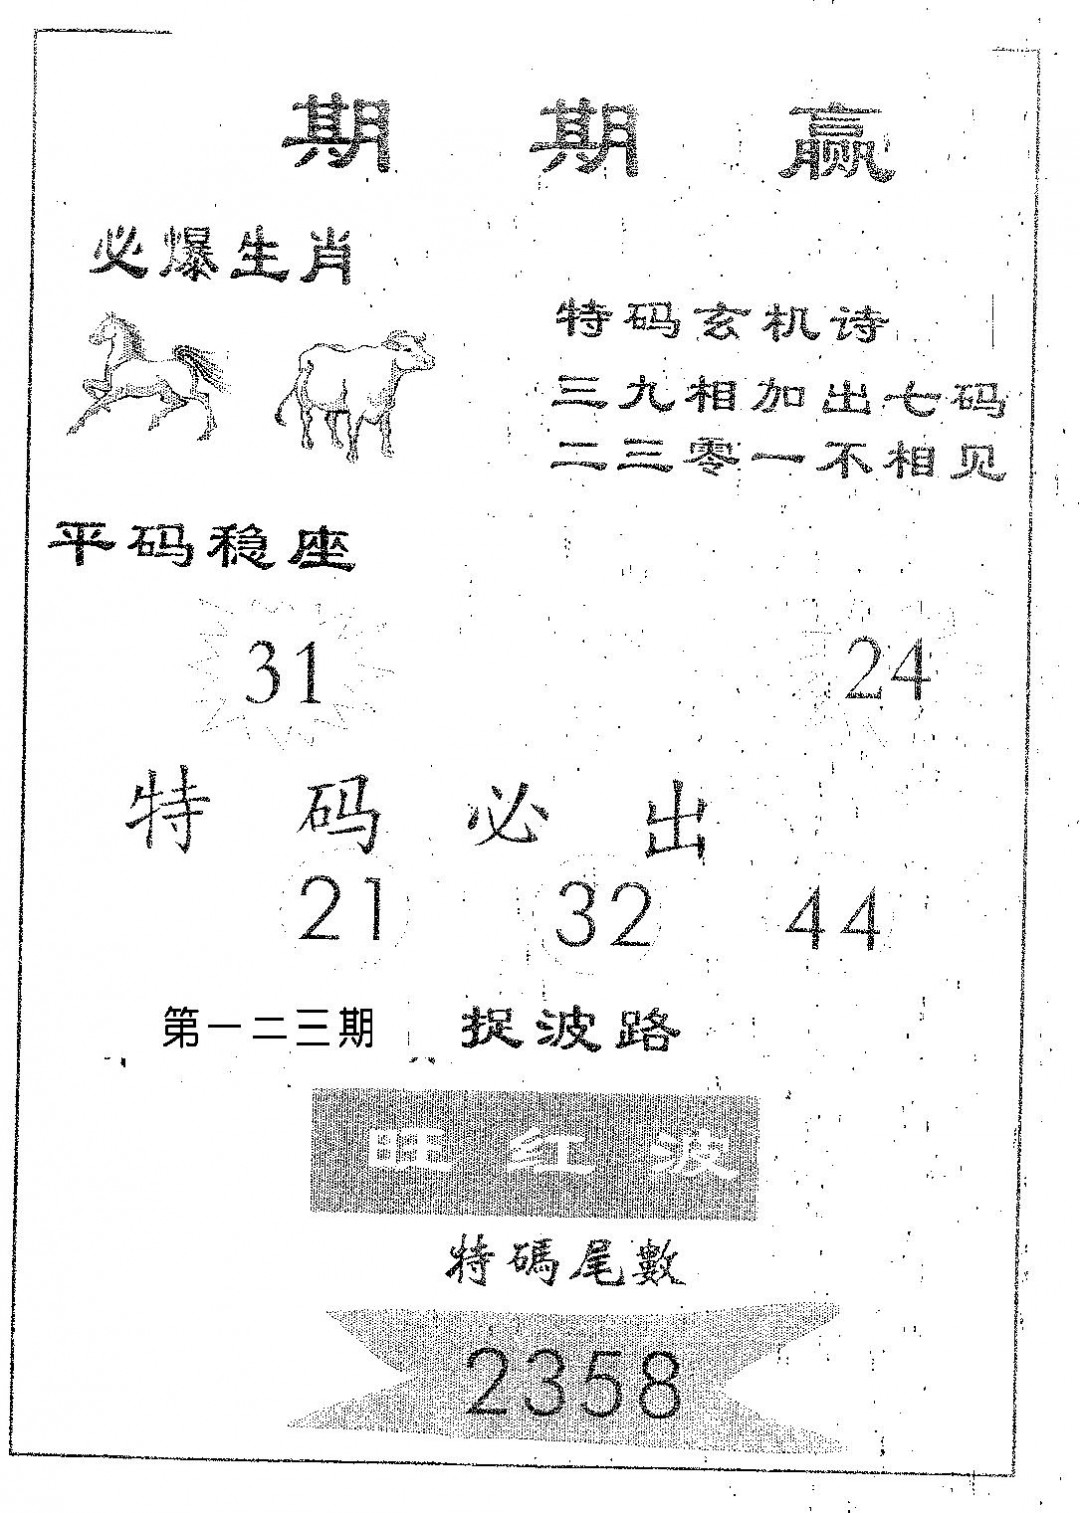 期期赢
必爆生肖
特码玄机诗
三九相加出七码
二三零一不相见
平码稳座
31
24
特码必出
21 32 44
第一二三期 捉波路
旺红波
特碼尾數
2358